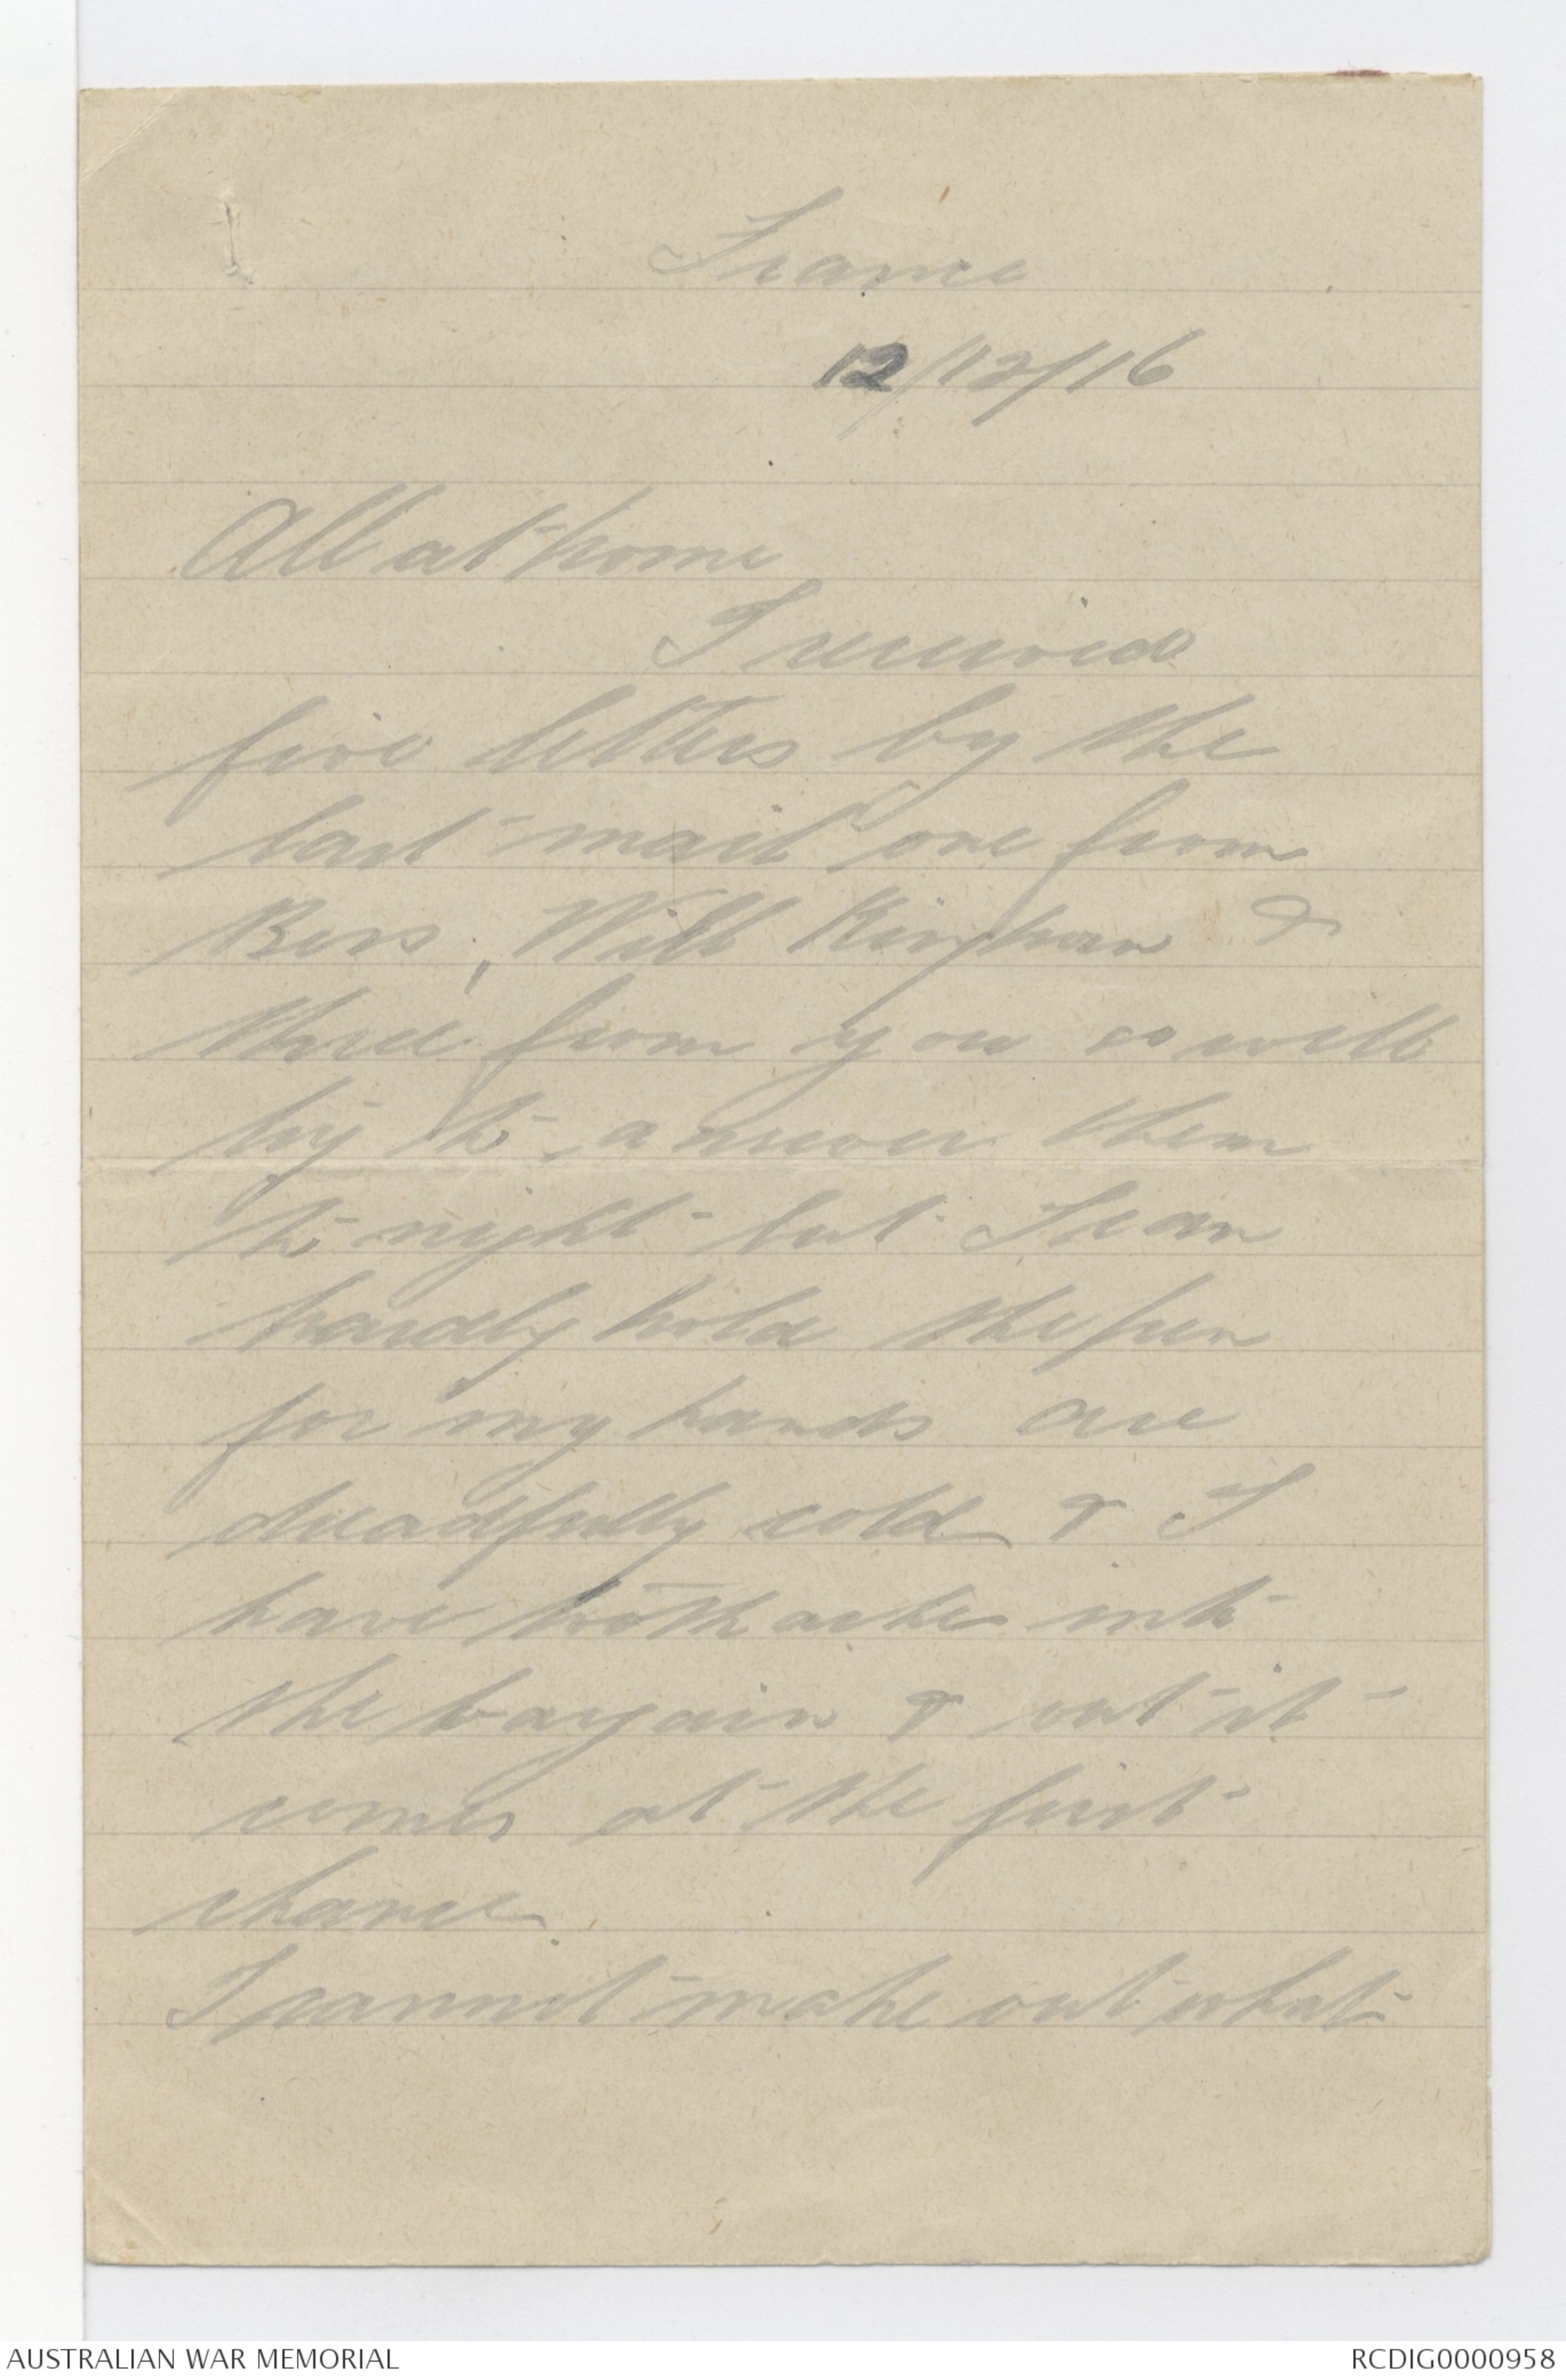 France
12/12/16
All at home
I received
five letters by the
last mail one from
Bess, Will Kingham &
three from you so will
try to answer them
to night but I can
hardly hold the pen
for my hands are
dreadfully cold & I
have toothache into
the bargain & out it
comes at the first
chance.
I cannot make out what
AUSTRALIAN WAR MEMORIAL
RCDIG0000958